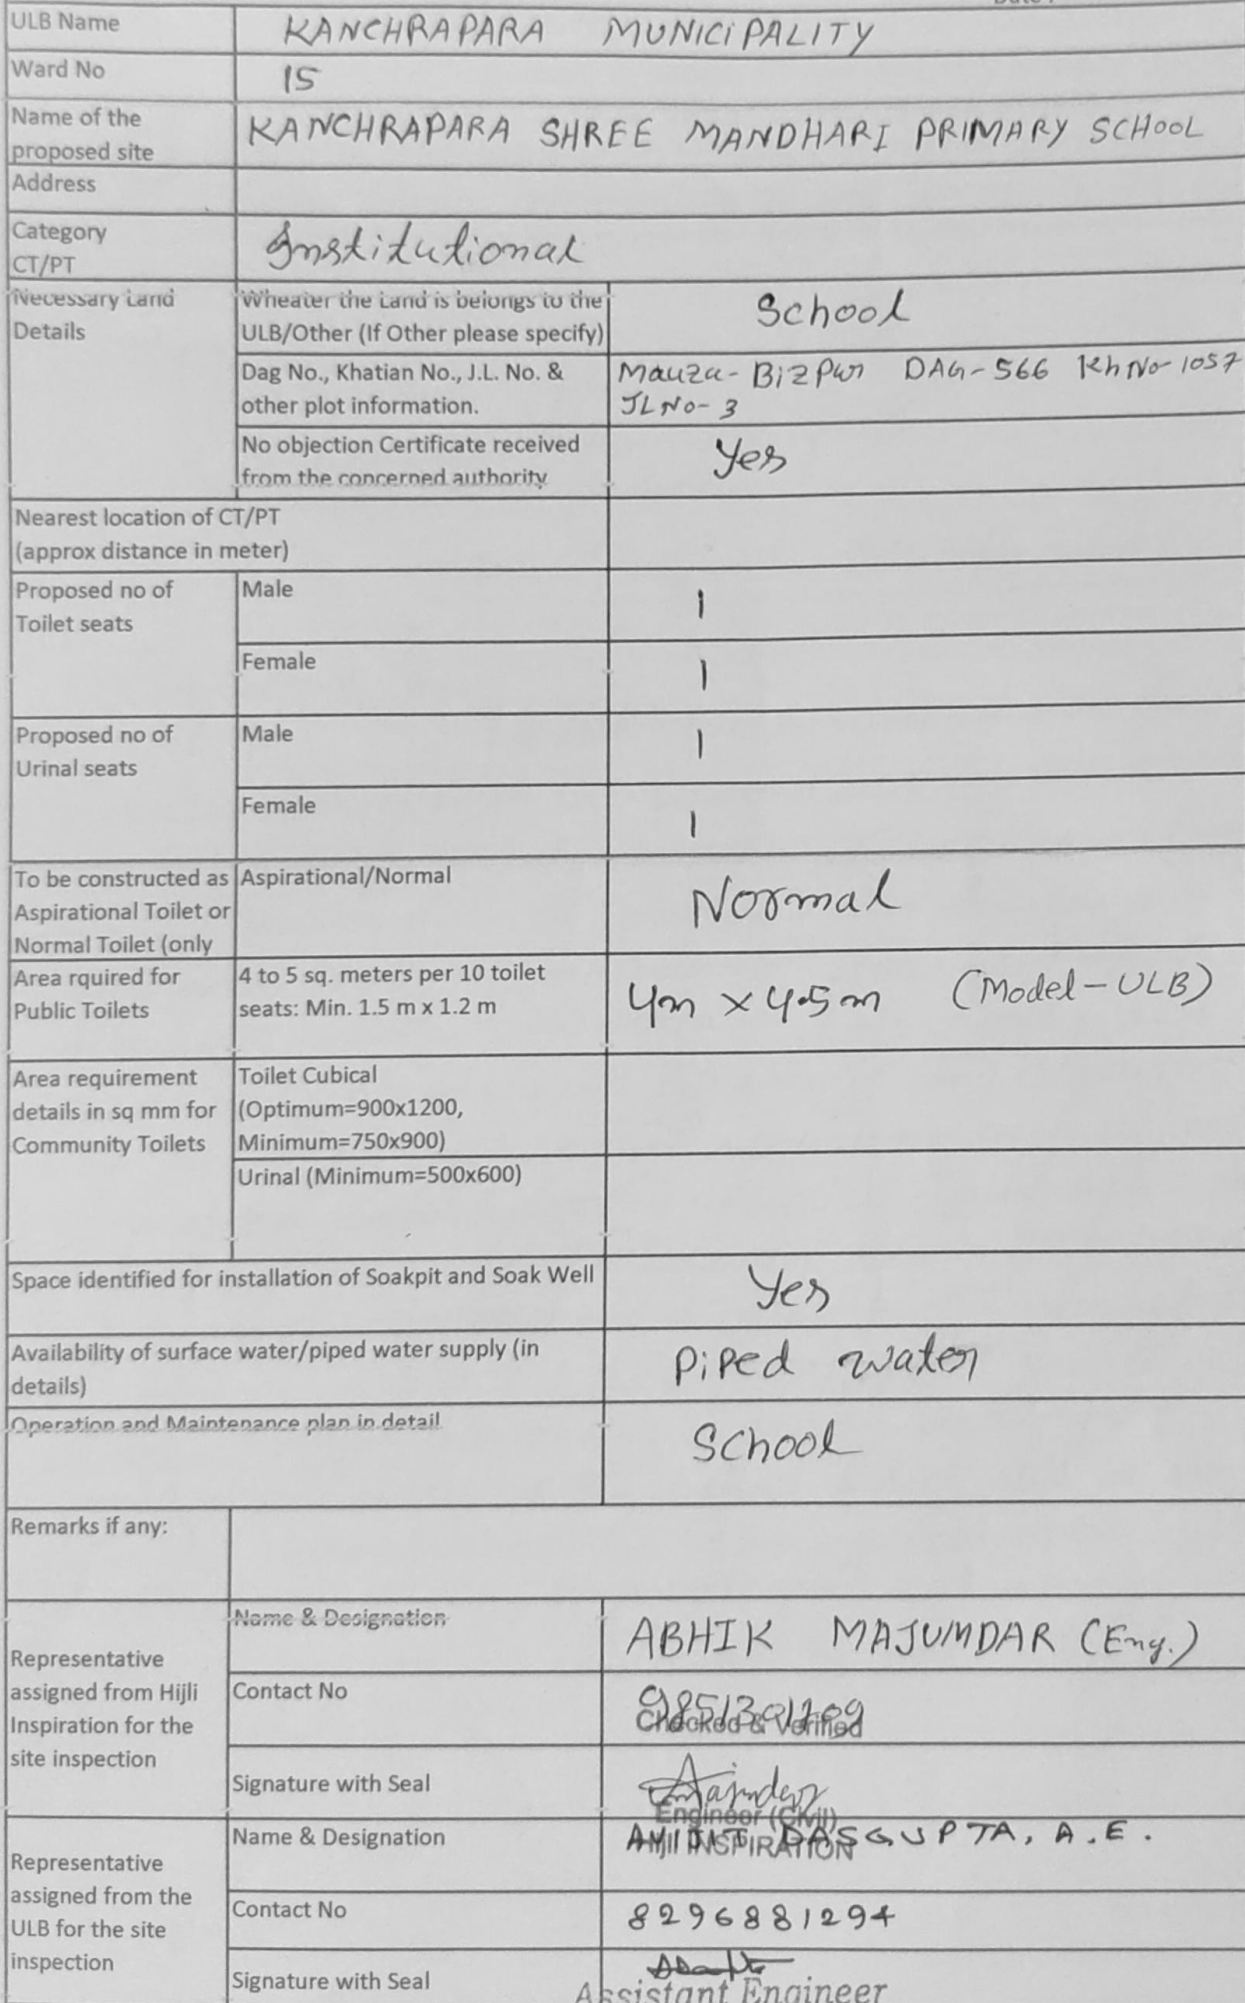 ULB Name KANCHRAPARA MUNICIPALITY
Ward No 15
Name of the
proposed site KANCHRAPARA SHREE MANDHARI PRIMARY SCHOOL
Address
Category
CT/PT Institutional
Necessary Land
Details
Wheater the Land is belongs to the
ULB/Other (If Other please specify)
School
Dag No., Khatian No., J.L. No. &
other plot information.
Mauza- Bizpur DAG-566 Kh No-1057
JL No- 3
No objection Certificate received
from the concerned authority
Yes
Nearest location of CT/PT
(approx distance in meter)
Proposed no of
Toilet seats
Male 1
Female 1
Proposed no of
Urinal seats
Male 1
Female 1
To be constructed as
Aspirational Toilet or
Normal Toilet (only
Aspirational/Normal
Normal
Area rquired for
Public Toilets
4 to 5 sq. meters per 10 toilet
seats: Min. 1.5 m x 1.2 m
4m x 4.5m (Model-ULB)
Area requirement
details in sq mm for
Community Toilets
Toilet Cubical
(Optimum=900x1200,
Minimum=750x900)
Urinal (Minimum=500x600)
Space identified for installation of Soakpit and Soak Well Yes
Availability of surface water/piped water supply (in
details)
Piped water
Operation and Maintenance plan in detail
School
Remarks if any:
Representative
assigned from Hijli
Inspiration for the
site inspection
Name & Designation
ABHIK MAJUMDAR (Eng.)
Contact No
Checked & Verified
Signature with Seal
Engineer (Civil)
Hijli INSPIRATION
Representative
assigned from the
ULB for the site
inspection
Name & Designation
DASGUPTA, A.E.
Contact No
8296881294
Signature with Seal
Assistant Engineer